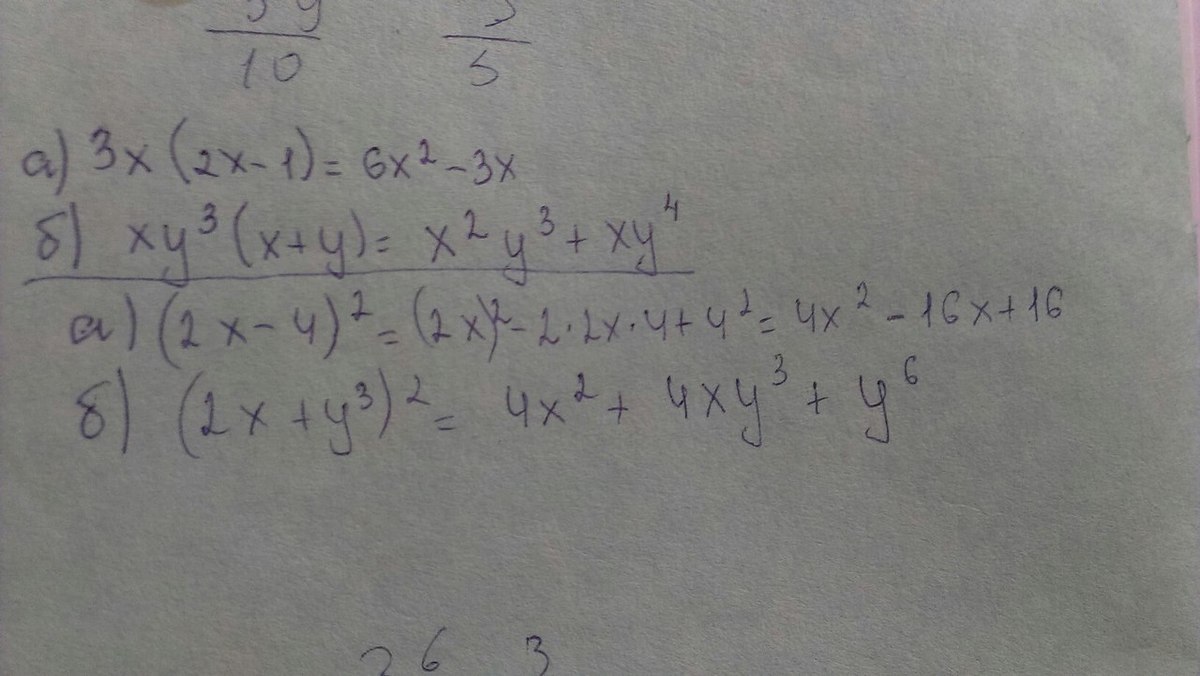 10 5
а) 3x (2x-1) = 6x² - 3x
б) xy³ (x+y) = x² y³ + xy⁴
а) (2x-4)² = (2x)² - 2·2x·4 + 4² = 4x² - 16x + 16
б) (2x + y³)² = 4x² + 4xy³ + y⁶